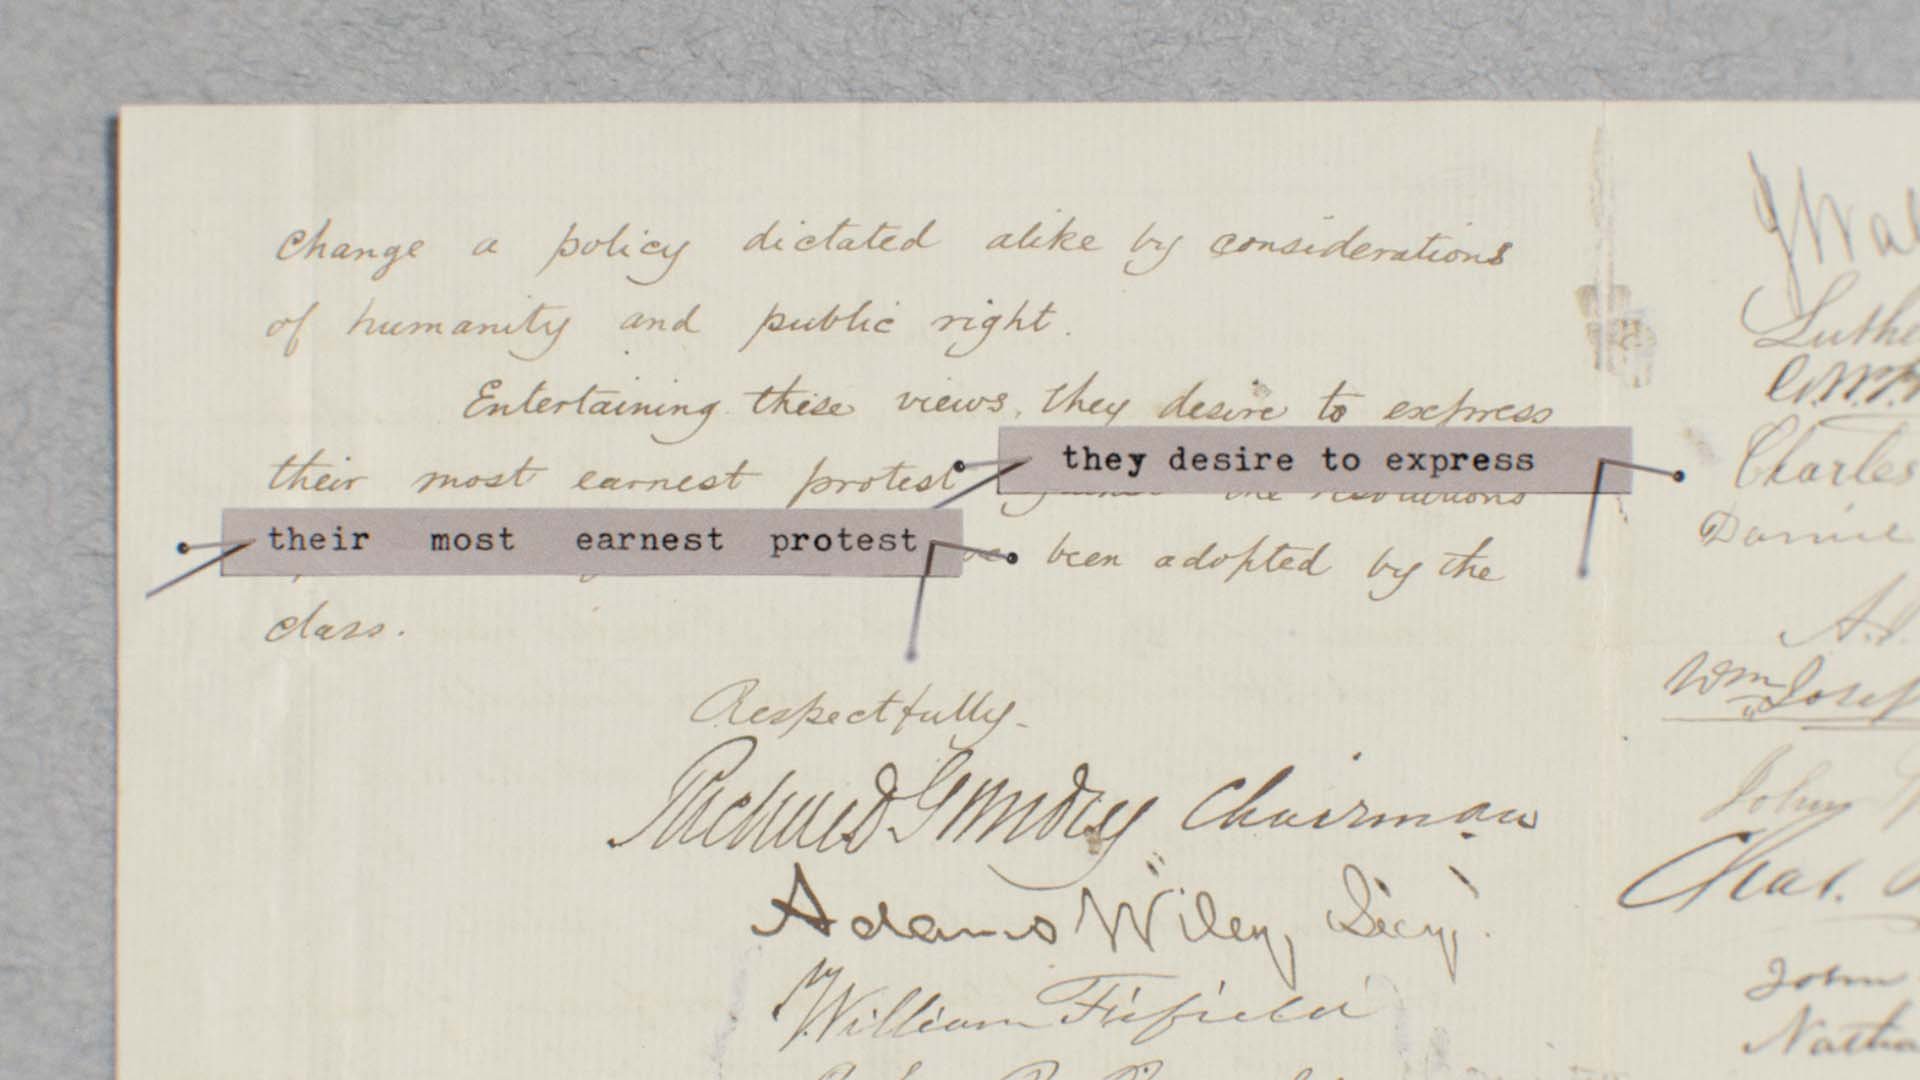 change a policy dictated alike by considerations
of humanity and public right.
Entertaining these views, they desire to express
they desire to express
their most earnest protest the resolutions
their most earnest protest
been adopted by the
class.
Respectfully.
Chairman
Adams Wiley, Secy.
William Fifield
Luthe
Charles
Daniel
A.
Wm Josep
John
Chas.
John
Natha